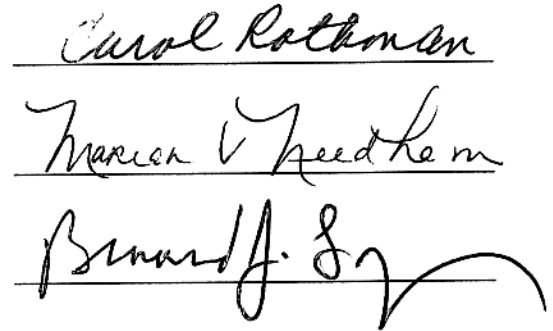 Carol Rothman
Marian V Needham
Bernard J.